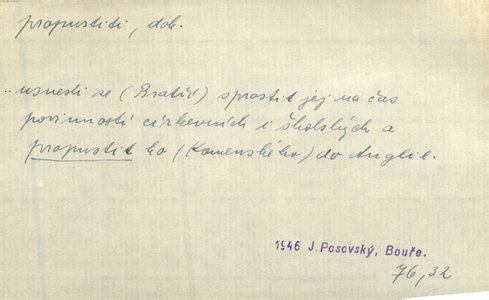 propustiti, dok.
..usnesli se (Bratří) sprostit jej na čas
povinností církevních i školských a
propustit ho (Komenského) do Anglie.
1946 J. Pasovský, Bouře.
76,32